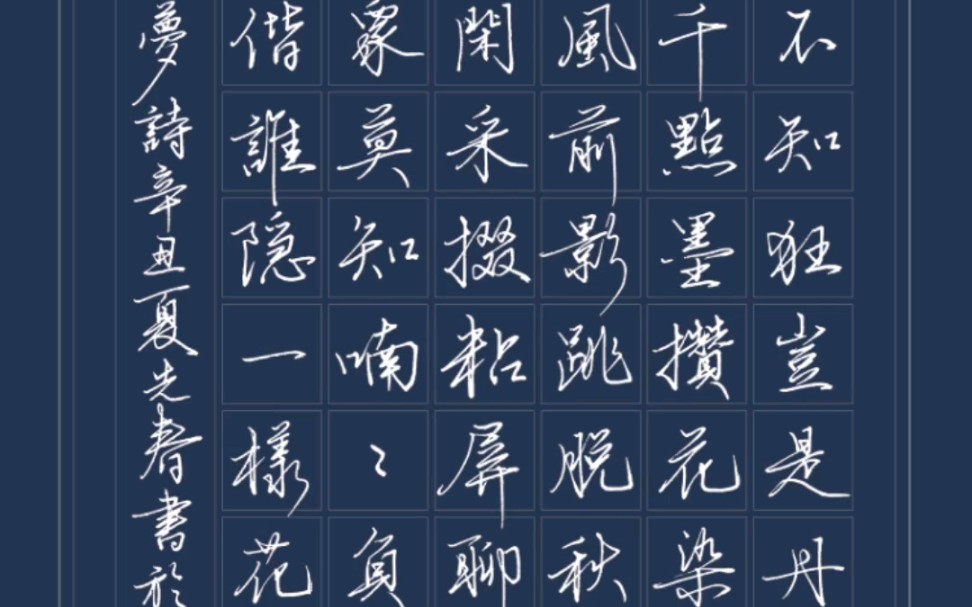 不知狂豈是丹
千點墨攢花染
風前影跳脱秋
閑采掇粘屏聊
衆莫知喃〻負
偕誰隐一樣花
夢詩辛丑夏先春書於